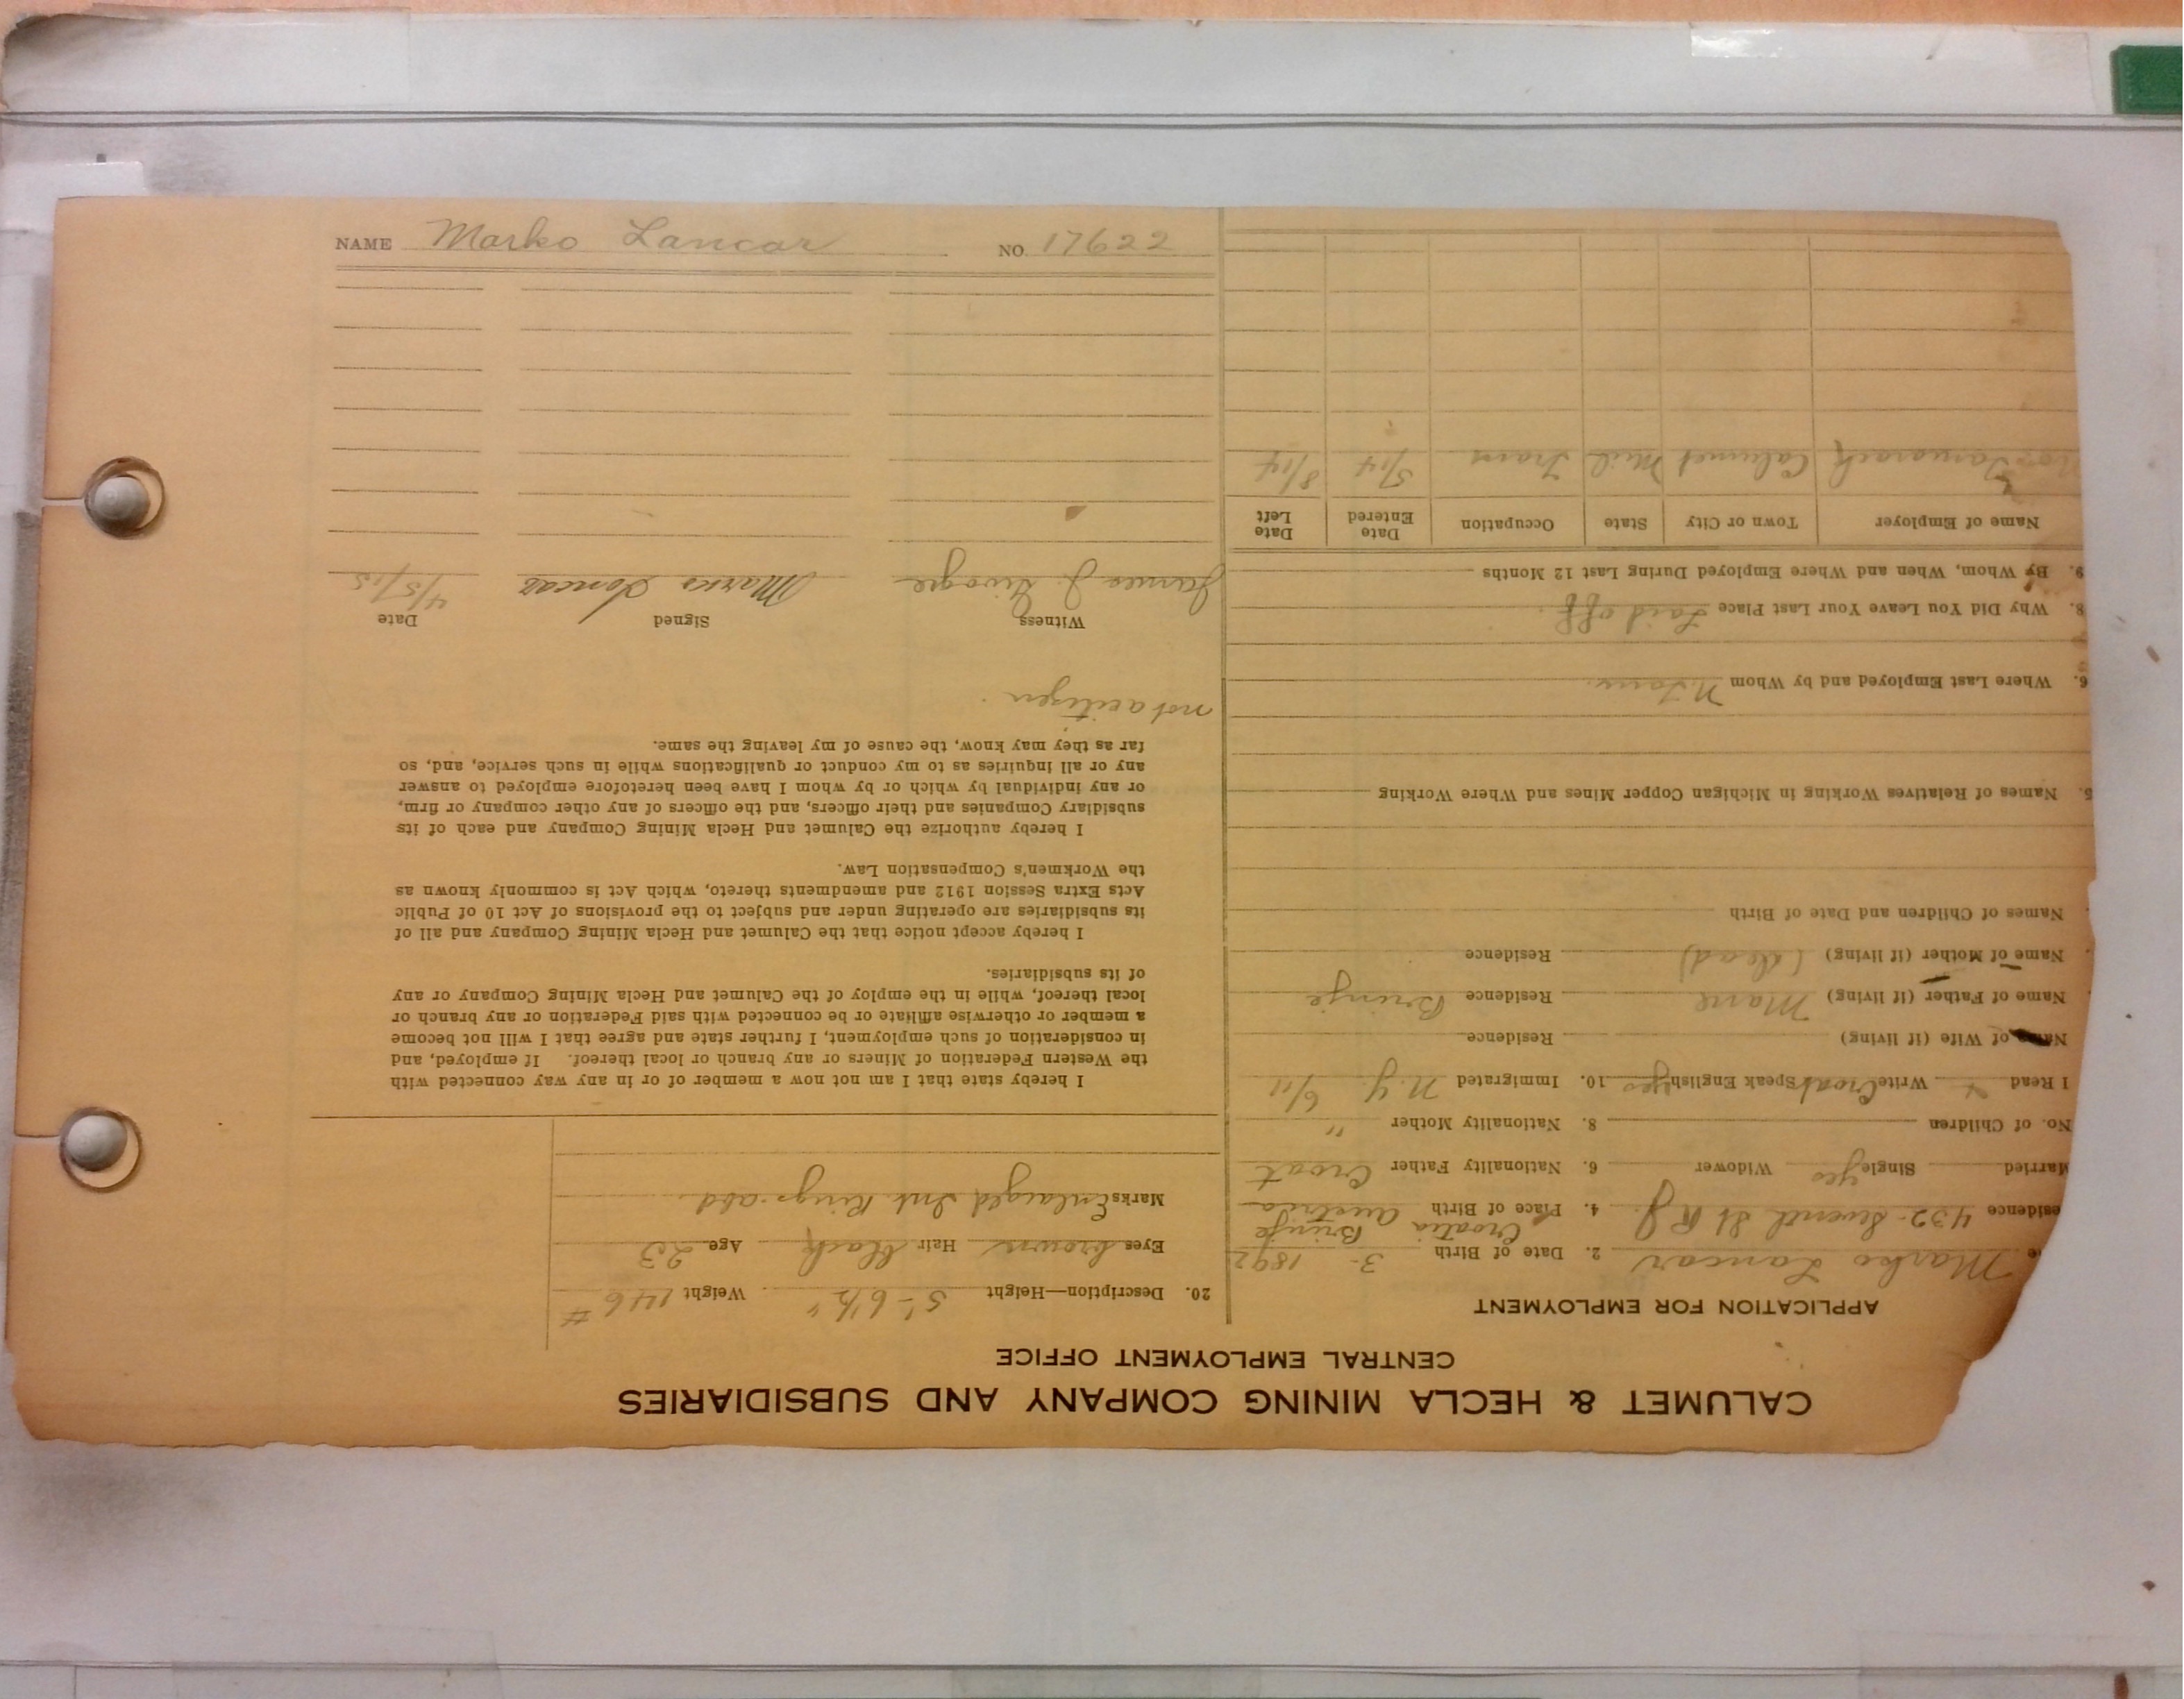 NAME Marko Lancar NO. 17622
CALUMET & HECLA MINING COMPANY AND SUBSIDIARIES
CENTRAL EMPLOYMENT OFFICE
APPLICATION FOR EMPLOYMENT
Marko Lancar 2. Date of Birth 3- 1892
Croatia Brinje
esidence 432- Seventh St R.J. 4. Place of Birth Austria
Married Single yes Widower 6. Nationality Father Croat
No. of Children 8. Nationality Mother "
I Read Write Croat Speak English yes 10. Immigrated N.Y. 6/11
Name of Wife (if living) Residence
Name of Father (if living) Mane Residence Brinje
Name of Mother (if living) (dead) Residence
Names of Children and Date of Birth
5. Names of Relatives Working in Michigan Copper Mines and Where Working
6. Where Last Employed and by Whom N. Tam.
8. Why Did You Leave Your Last Place Laid off.
9. By Whom, When and Where Employed During Last 12 Months
Name of Employer Town or City State Occupation Date Entered Date Left
Tamarack Calumet Mich Tram 5/14 8/14
20. Description—Height 5'-6½" Weight 146 #
Eyes brown Hair black Age 23
Marks Enlarged Int Rings-abd.
I hereby state that I am not now a member of or in any way connected with
the Western Federation of Miners or any branch or local thereof. If employed, and
in consideration of such employment, I further state and agree that I will not become
a member or otherwise affiliate or be connected with said Federation or any branch or
local thereof, while in the employ of the Calumet and Hecla Mining Company or any
of its subsidiaries.
I hereby accept notice that the Calumet and Hecla Mining Company and all of
its subsidiaries are operating under and subject to the provisions of Act 10 of Public
Acts Extra Session 1912 and amendments thereto, which Act is commonly known as
the Workmen's Compensation Law.
I hereby authorize the Calumet and Hecla Mining Company and each of its
subsidiary Companies and their officers, and the officers of any other company or firm,
or any individual by which or by whom I have been heretofore employed to answer
any or all inquiries as to my conduct or qualifications while in such service, and, so
far as they may know, the cause of my leaving the same.
not a citizen.
Witness Signed Date
James J. Marko Loncar 4/5/15